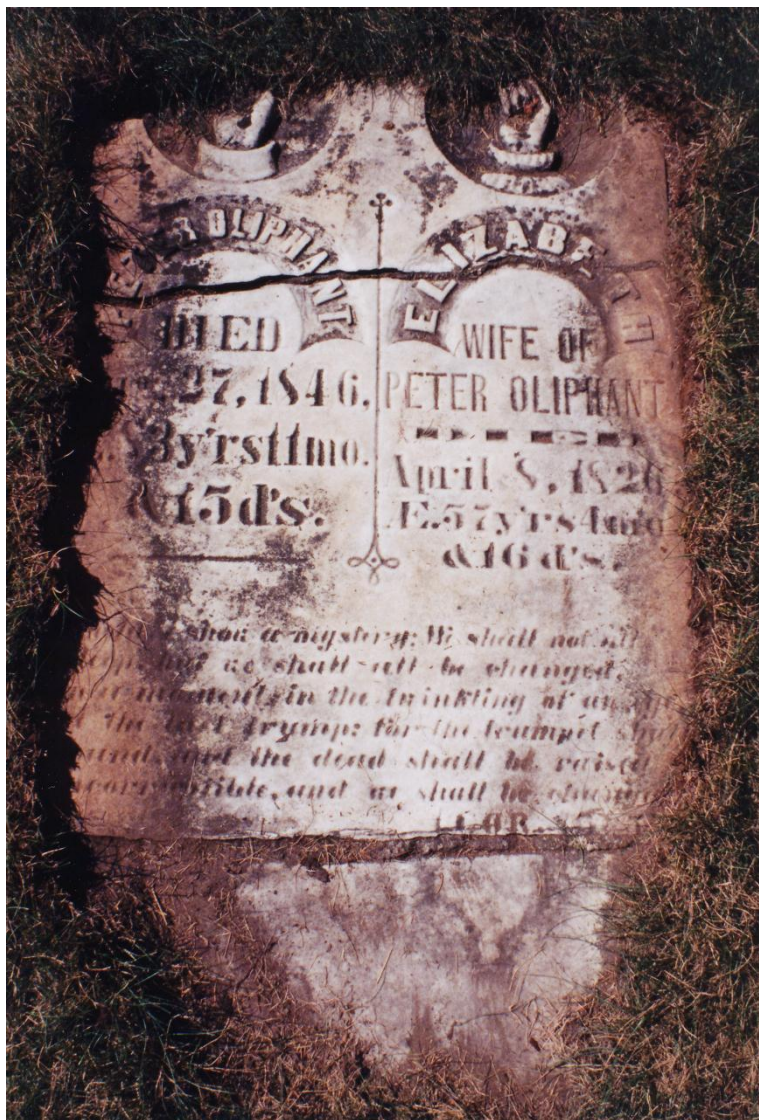 PETER OLIPHANT
DIED
27, 1846,
3y'rs 11mo.
& 15d's.
ELIZABETH
WIFE OF
PETER OLIPHANT
DIED
April 8, 1826
Æ. 57y'rs 4mo
& 16 d's.
shew a mystery; We shall not all
but we shall all be changed,
moment, in the twinkling of an eye
the last trump: for the trumpet
and the dead shall be raised
incorruptible, and we shall be changed
1 COR.